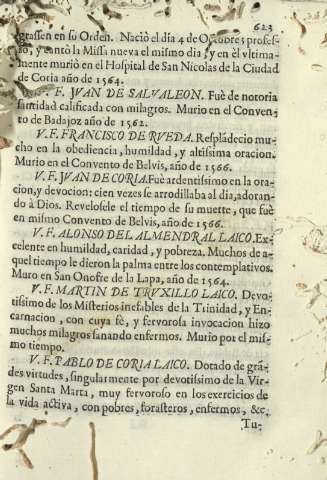 623
grassen en su Orden. Naciò el dia 4 de Octubre; profes-
sò, y cantò la Missa nueva el mismo dia, y en èl vltima-
mente muriò en el Hospital de San Nicolas de la Ciudad
de Coria año de 1564.
V. F. JVAN DE SALVALEON. Fuè de notoria
santidad calificada con milagros. Murio en el Conven-
to de Badajoz año de 1562.
V. F. FRANCISCO DE RVEDA. Resplãdeciò mu-
cho en la obediencia, humildad, y altissima oracion.
Murio en el Convento de Belvis, año de 1566.
V. F. JVAN DE CORIA Fuè ardentissimo en la ora-
cion, y devocion: cien vezes se arrodillaba al dia, adoran-
do à Dios. Revelosele el tiempo de su muerte, que fuè
en mismo Convento de Belvis, año de 1566.
V. F. ALONSO DEL ALMENDRAL LAICO. Ex-
celente en humildad, caridad, y pobreza. Muchos de a-
quel tiempo le dieron la palma entre los contemplativos.
Muro en San Onofre de la Lapa, año de 1564.
V. F. MARTIN DE TRVXILLO LAICO. Devo-
tissimo de los Misterios inefables de la Trinidad, y En-
carnacion, con cuya fè, y fervorosa invocacion hizo
muchos milagros sanando enfermos. Murio por el mis-
mo tiempo.
V. F. PABLO DE CORIA LAICO. Dotado de grã-
des virtudes, singularmente por devotissimo de la Vir-
gen Santa Marta, muy fervoroso en los exercicios de
la vida activa, con pobres, forasteros, enfermos, &c.
Tu-